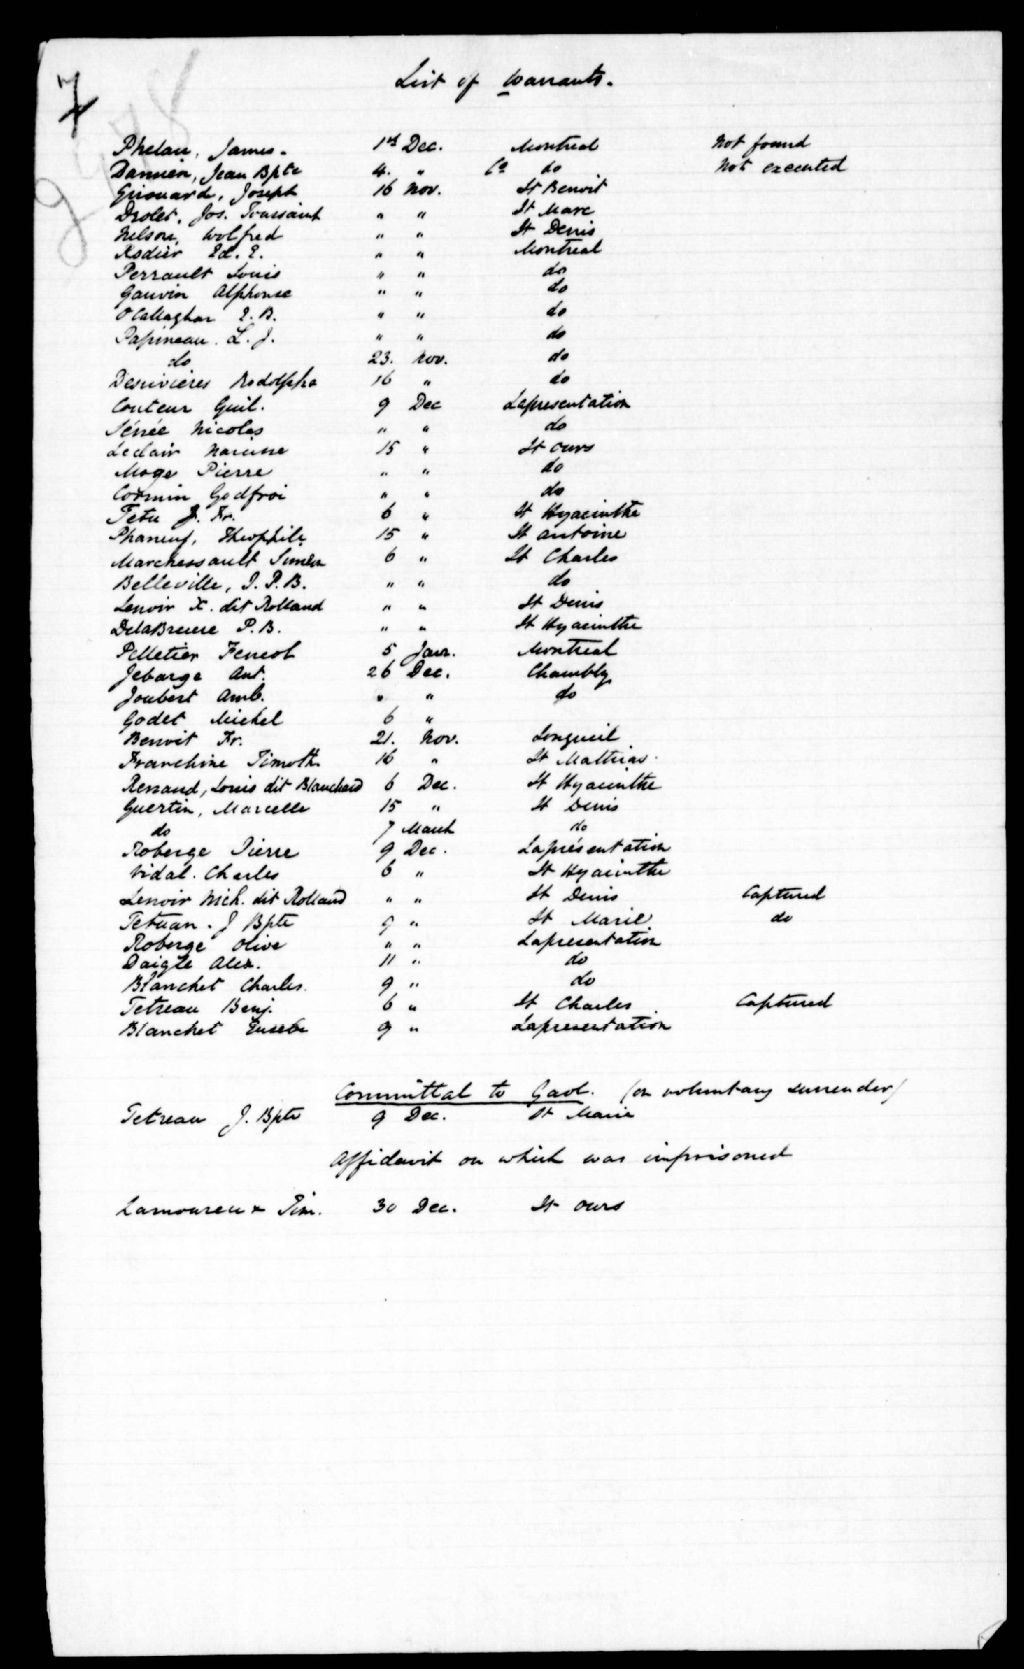 7
List of Warrants.
Phelan, James. 1st Dec. Montreal Not found
Damien, Jean Bpte 4. " Co do Not executed
Girouard, Joseph 16 Nov. St Benoit
Drolet, Jos. Toussaint " " St Marc
Nelson, Wolfred " " St Denis
Rodier Ed. E. " " Montreal
Perrault Louis " " do
Gauvin Alphonse " " do
O'Callaghan E. B. " " do
Papineau. L. J. " " do
do 23. Nov. do
Desrivières Rodolphe 16 " do
Couteur Guil. 9 Dec Lapresentation
Nicolas " " do
Leclair Narcisse 15 " St Ours
Moge Pierre " " do
Cormin Godfroi " " do
Tetu J. Fr. 6 " St Hyacinthe
Phaneuf, Theophile 15 " St Antoine
Marchessault Simèn 6 " St Charles
Belleville, I. P. B. " " do
Lenoir X. dit Rolland " " St Denis
DelaBruere P. B. " " St Hyacinthe
Pelletier 5 Janr. Montreal
Jebarge Ant. 26 Dec. Chambly
Joubert Amb. " " do
Godet Michel 6 "
Benoit Fr. 21. Nov. Longueil
Franchine Timoth. 16 " St Mathias.
Renaud, Louis dit Blanchard 6 Dec. St Hyacinthe
Guertin, Marcelle 15 " St Denis
do 7 March do
Roberge Pierre 9 Dec. Laprésentation
Vidal. Charles 6 " St Hyacinthe
Lenoir Mich. dit Rolland " " St Denis Captured
Tetuan. J Bpte 9 " St Marie do
Roberge Olive " " Lapresentation
Daigle Alex. 11 " do
Blanchet Charles. 9 " do
Tetreau Benj. 6 " St Charles Captured
Blanchet Eusebe 9 " Lapresentation
Committal to Gaol. (on voluntary surrender)
Tetreau J. Bpte 9 Dec. St Marie
Affidavit on which was imprisoned
Lamoureux Tim. 30 Dec. St Ours